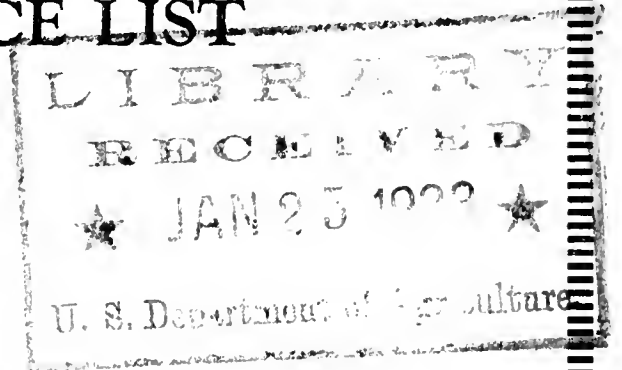 CE LIST
LIBRARY
RECEIVED
★ JAN 25 ★
U. S. Department of Agriculture